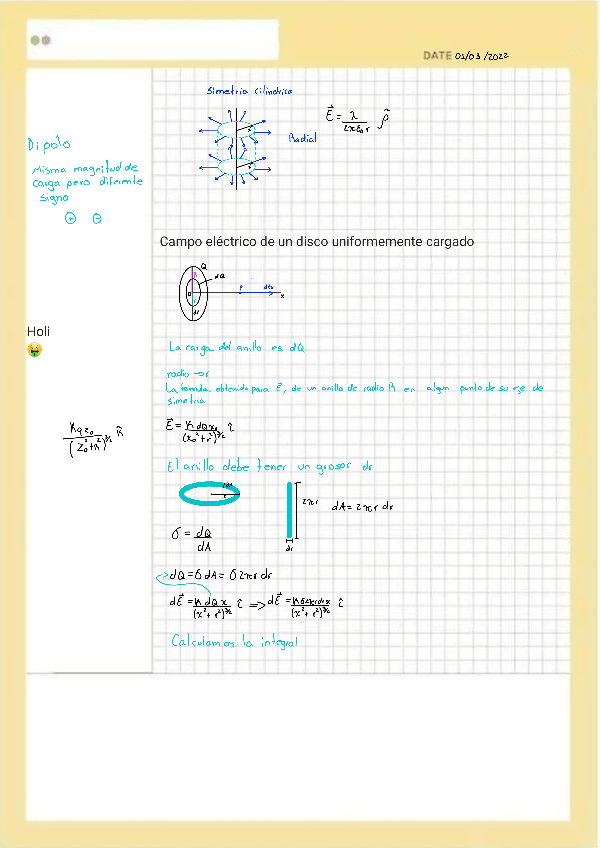 DATE 01/03/2022
Simetria Cilindrica
E⃗ = λ / 2πε₀r ρ̂
Radial
Dipolo
Misma magnitud de
Carga pero diferente
Signo
⊕ ⊖
Campo eléctrico de un disco uniformemente cargado
Q
dQ
P
x
dr
Holi
🤑
La carga del anillo es dQ
radio → r
La formula obtenida para E⃗, de un anillo de radio R en algun punto de su eje de
simetria
Kqz₀ / (z₀²+R²)^3/2 k̂
E⃗ = K dQ x₀ / (x₀²+r²)^3/2 î
El anillo debe tener un grosor dr
2πr
dA = 2πr dr
dr
σ = dQ / dA
=> dQ = σ dA = σ 2πr dr
dE⃗ = K dQ x / (x²+r²)^3/2 î => dE⃗ = Kσ2πr dr x / (x²+r²)^3/2 î
Calculamos la integral